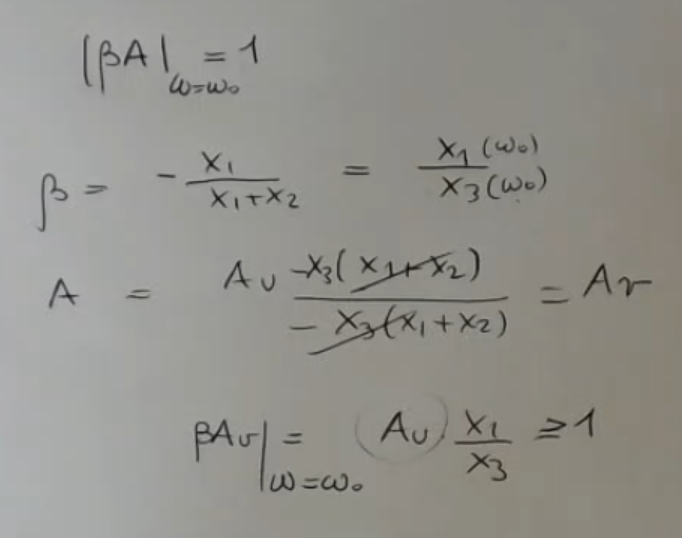 |βA|ω=ω₀ = 1
β = - X₁ / (X₁+X₂) = X₁(ω₀) / X₃(ω₀)
A = Aᵥ -X₃(X₁+X₂) / -X₃(X₁+X₂) = Aᵥ
βAᵥ|ω=ω₀ = Aᵥ · X₁ / X₃ ≥ 1